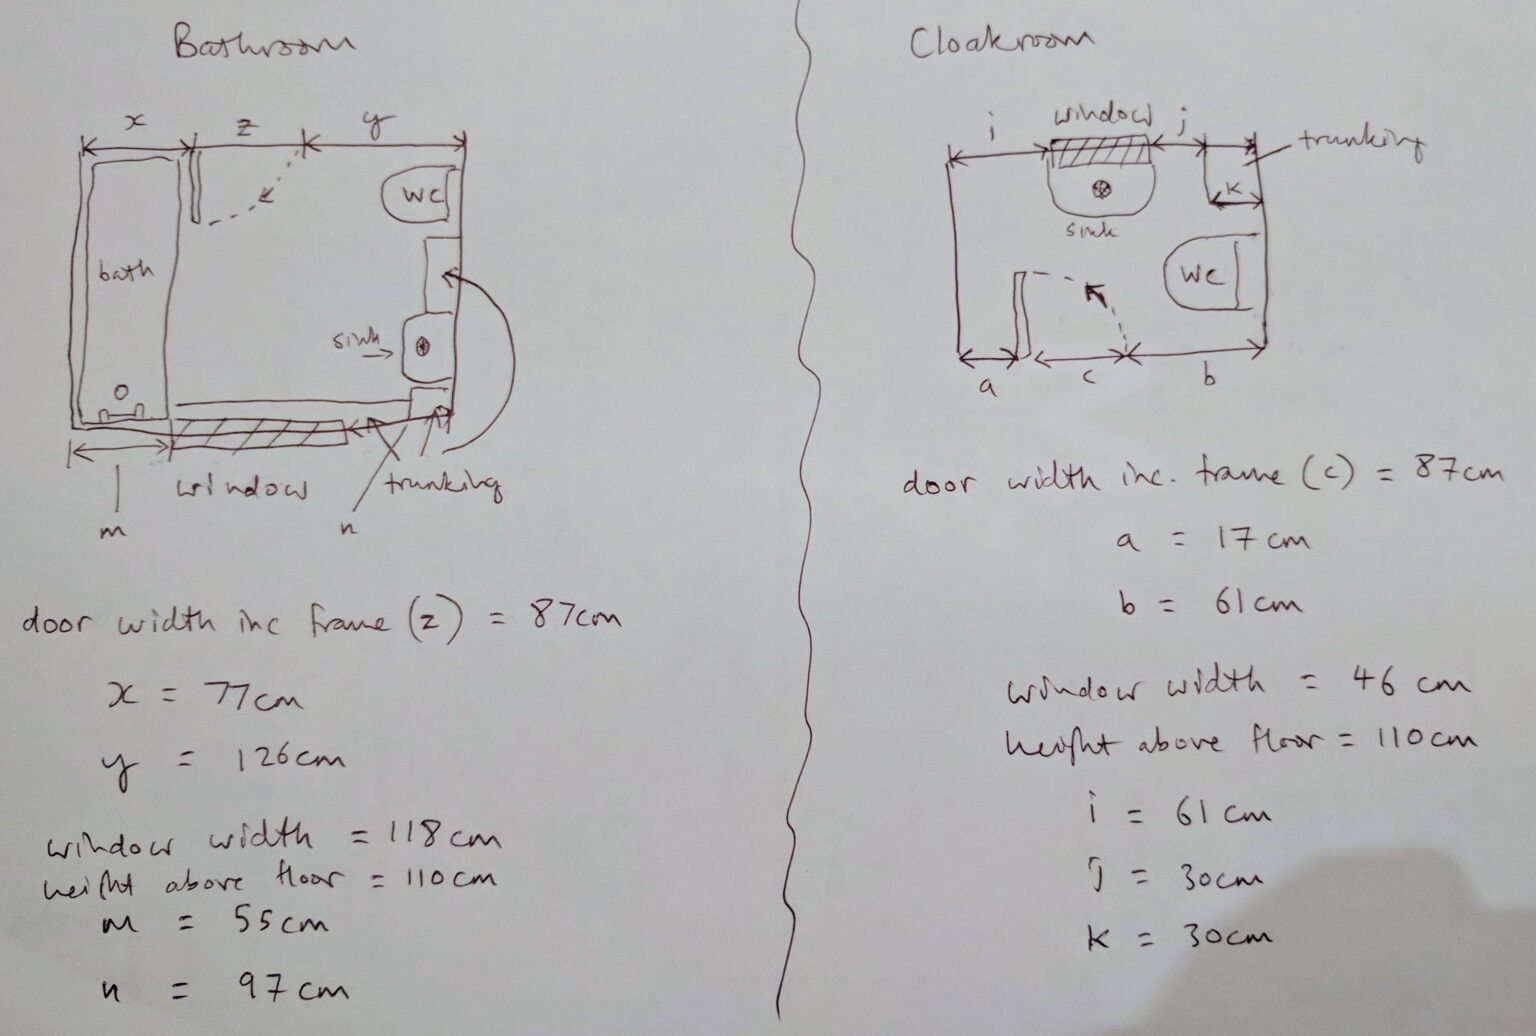 Bathroom
x z y
WC
bath
sink
O
window trunking
m n
door width inc frame (z) = 87cm
x = 77cm
y = 126cm
window width = 118cm
height above floor = 110cm
m = 55cm
n = 97cm
Cloakroom
i window j
trunking
k
sink
WC
a c b
door width inc. frame (c) = 87cm
a = 17cm
b = 61cm
window width = 46 cm
height above floor = 110cm
i = 61 cm
j = 30cm
k = 30cm